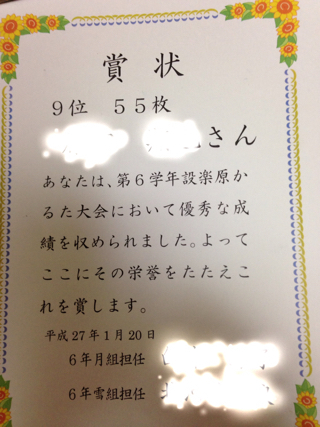 賞状
9位 55枚
さん
あなたは、第6学年設楽原か
るた大会において優秀な成
績を収められました。よって
ここにその栄誉をたたえこ
れを賞します。
平成27年1月20日
6年月組担任
6年雪組担任